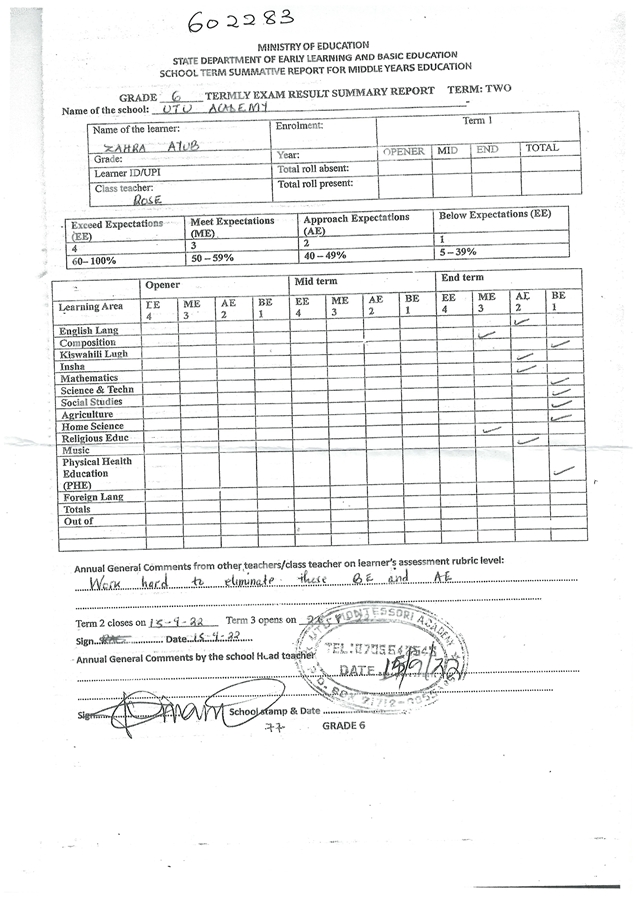 602283
MINISTRY OF EDUCATION
STATE DEPARTMENT OF EARLY LEARNING AND BASIC EDUCATION
SCHOOL TERM SUMMATIVE REPORT FOR MIDDLE YEARS EDUCATION
GRADE 6 TERMLY EXAM RESULT SUMMARY REPORT TERM: TWO
Name of the school: UTU ACADEMY
Name of the learner: Enrolment: Term 1
ZAHRA AYUB
Grade: Year: OPENER MID END TOTAL
Learner ID/UPI Total roll absent:
Class teacher: Total roll present:
ROSE
Exceed Expectations (EE) Meet Expectations (ME) Approach Expectations (AE) Below Expectations (EE)
4 3 2 1
60–100% 50–59% 40–49% 5–39%
Opener Mid term End term
Learning Area EE ME AE BE EE ME AE BE EE ME AE BE
4 3 2 1 4 3 2 1 4 3 2 1
English Lang
Composition
Kiswahili Lugh
Insha
Mathematics
Science & Techn
Social Studies
Agriculture
Home Science
Religious Educ
Music
Physical Health
Education
(PHE)
Foreign Lang
Totals
Out of
Annual General Comments from other teachers/class teacher on learner's assessment rubric level:
Work hard to eliminate these BE and AE
Term 2 closes on 15-9-22 Term 3 opens on
Sign Date 15-9-22
Annual General Comments by the school Head teacher
UTU MONTESSORI ACADEMY
DATE 15/9/22
Sign School stamp & Date
77 GRADE 6